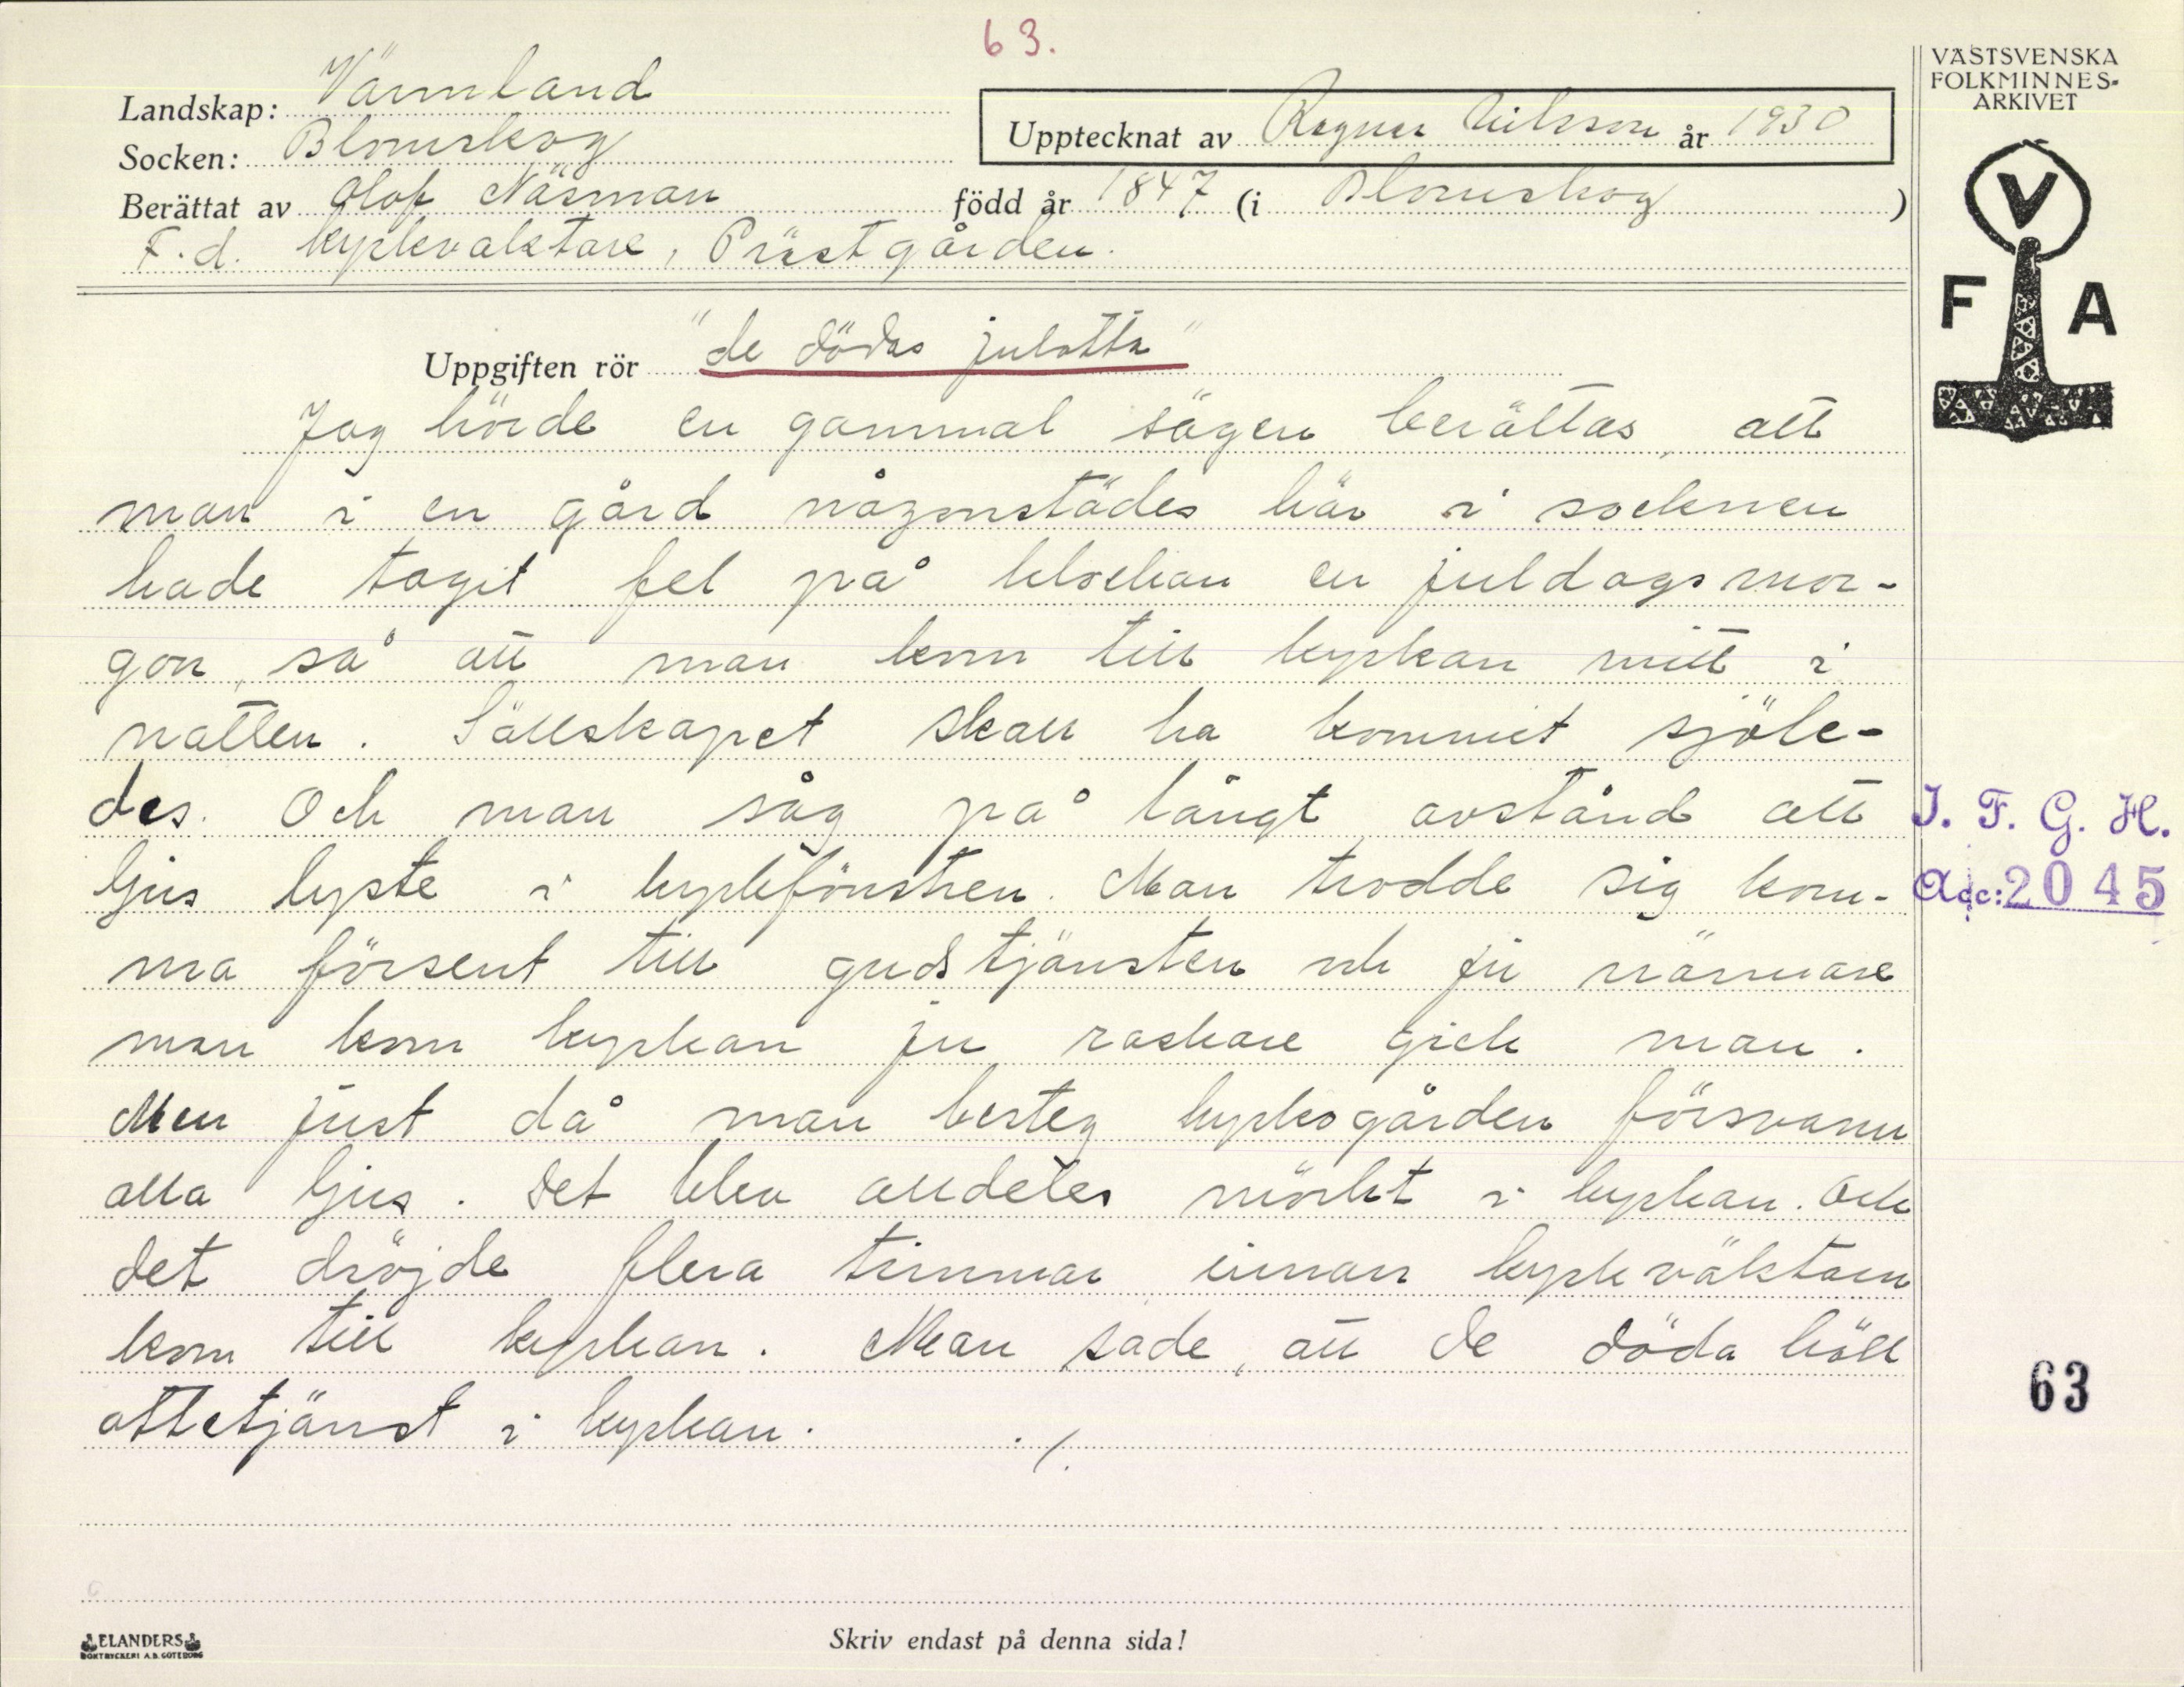 63.
Landskap: Värmland
Socken: Blomskog
Upptecknat av Ragnar Nilsson år 1930
Berättat av Olof Näsman född år 1847 (i Blomskog)
F.d. kyrkvaktare, Prästgården.
VÄSTSVENSKA
FOLKMINNES-
ARKIVET
V
F A
Uppgiften rör "de dödas julotta"
Jag hörde en gammal sägen berättas, att
man i en gård någonstädes här i socknen
hade tagit fel på klockan en juldagsmor-
gon, så att man kom till kyrkan mitt i
natten. Sällskapet skall ha kommit sjöle-
des. Och man såg på långt avstånd att
ljus lyste i kyrkfönstren. Man trodde sig kom-
ma försent till gudstjänsten och ju närmare
man kom kyrkan ju raskare gick man.
Men just då man besteg kyrkogården försvann
alla ljus. Det blev alldeles mörkt i kyrkan. Och
det dröjde flera timmar innan kyrkväktaren
kom till kyrkan. Man sade, att de döda höll
ottetjänst i kyrkan. ./.
I. F. G. H.
Acc: 2045
63
ELANDERS
BOKTRYCKERI A.B. GÖTEBORG
Skriv endast på denna sida!